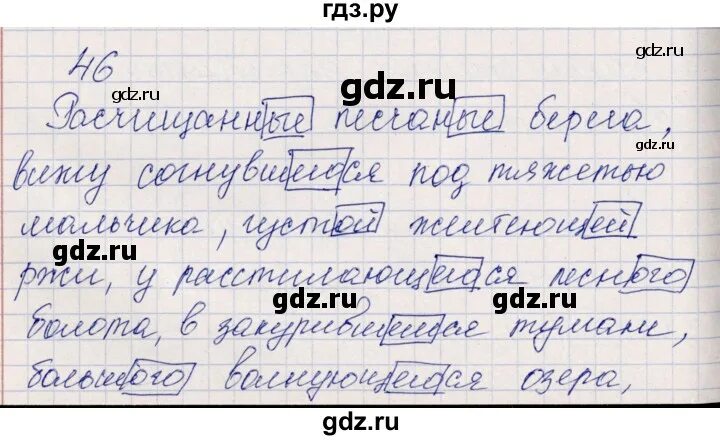 гдз.ру
46
gdz.ru
gdz.ru
gdz.ru
Расчищанные песчаные берега,
вижу согнувшегося под тяжетью
gdz.ru
gdz.ru
мальчика, густой желтеющей
gdz.ru
ржи, у расстилающегося лесного
gdz.ru
gdz.ru
болота, в закурившемся тумане,
большого волнующегося озера,
gdz.ru
gdz.ru